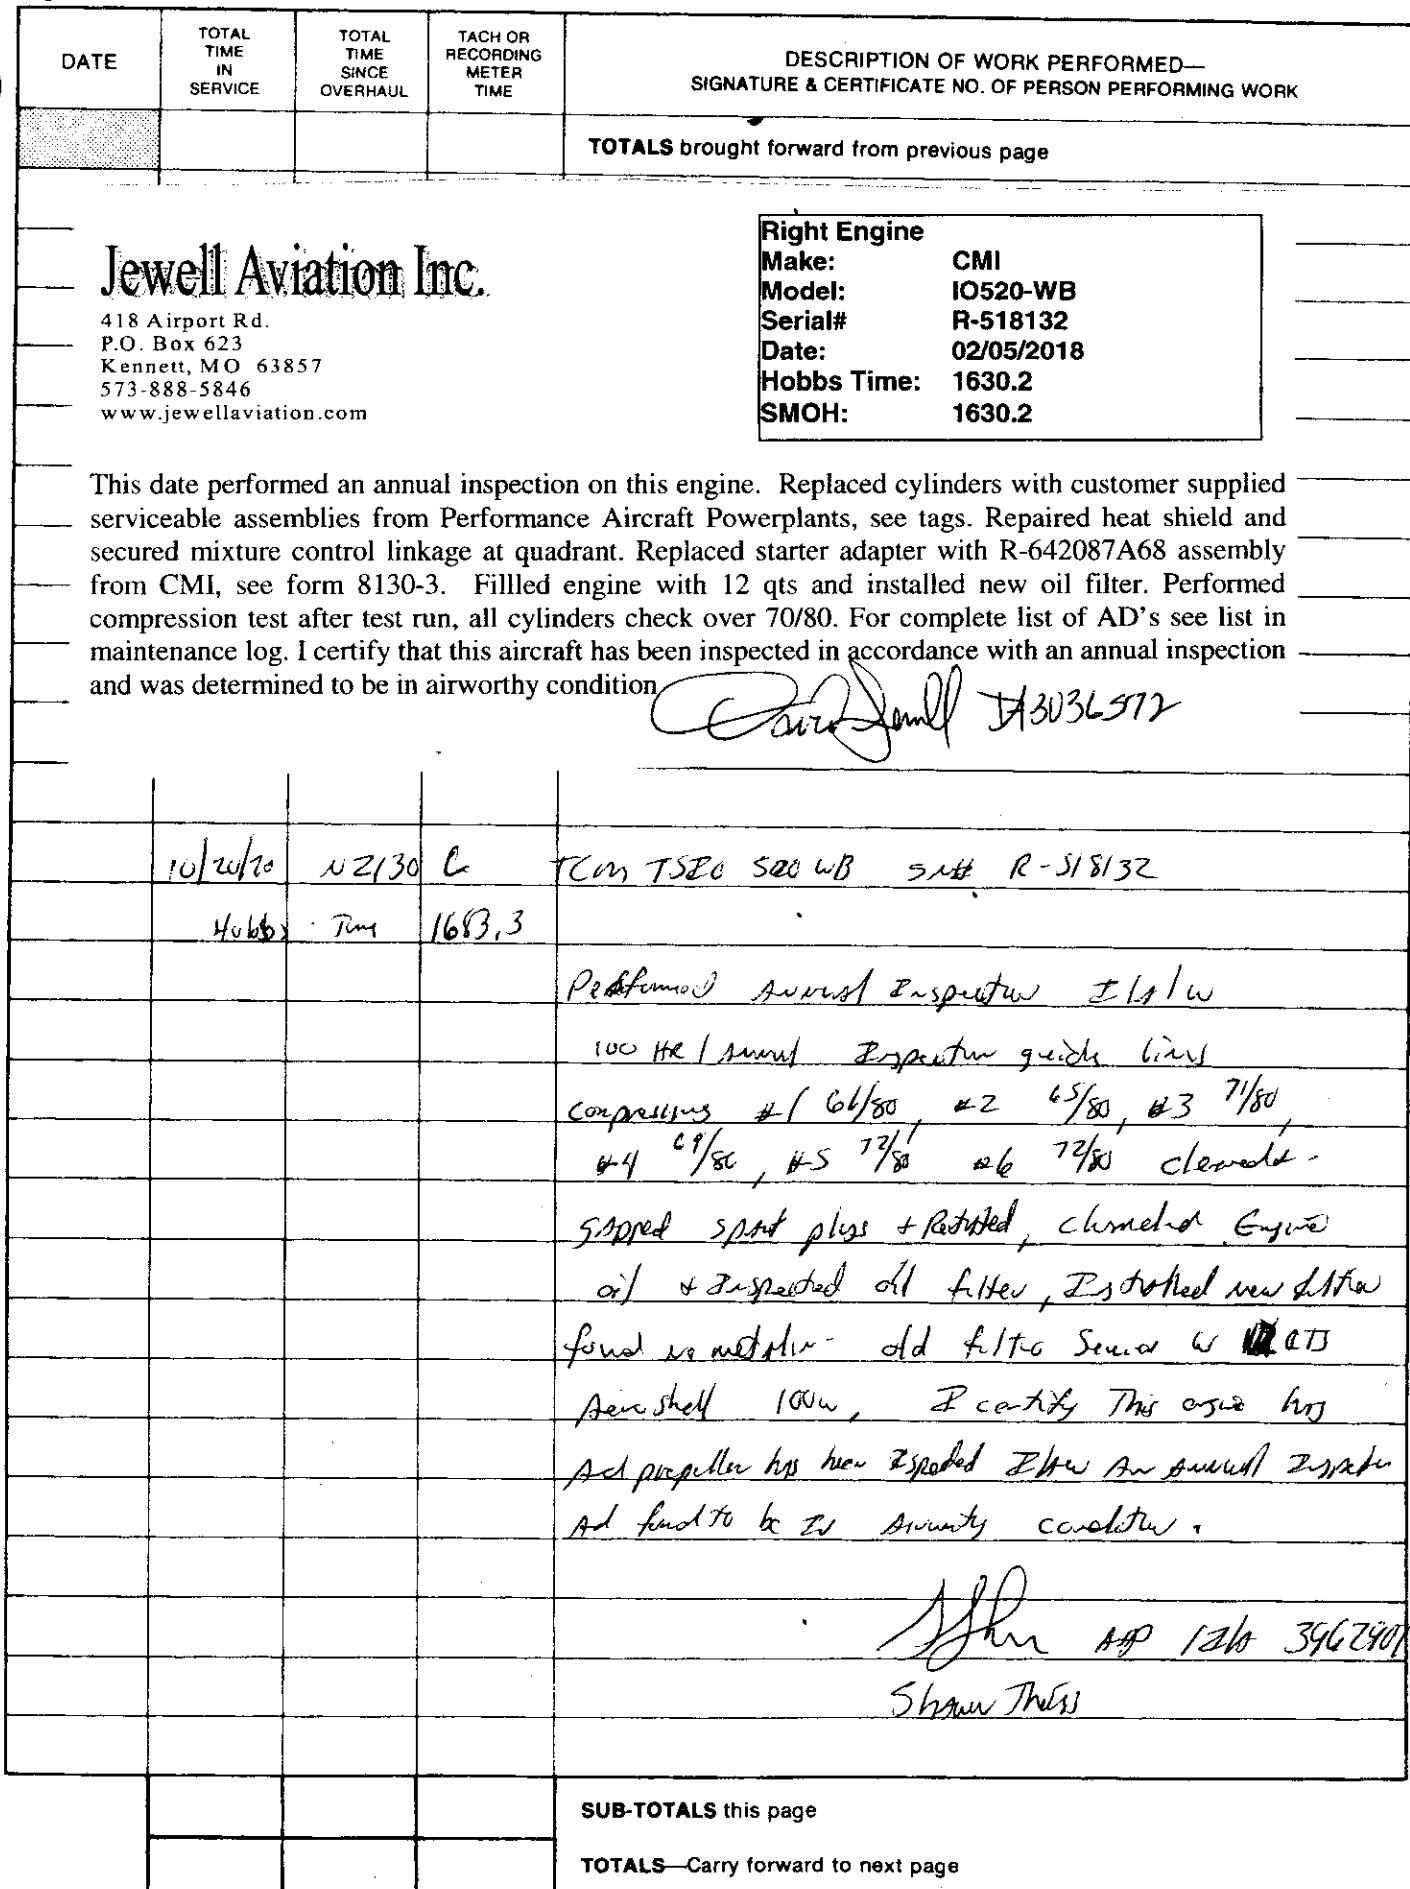 DATE
TOTAL TIME IN SERVICE
TOTAL TIME SINCE OVERHAUL
TACH OR RECORDING METER TIME
DESCRIPTION OF WORK PERFORMED—
SIGNATURE & CERTIFICATE NO. OF PERSON PERFORMING WORK
TOTALS brought forward from previous page
Jewell Aviation Inc.
418 Airport Rd.
P.O. Box 623
Kennett, MO 63857
573-888-5846
www.jewellaviation.com
Right Engine
Make: CMI
Model: IO520-WB
Serial# R-518132
Date: 02/05/2018
Hobbs Time: 1630.2
SMOH: 1630.2
This date performed an annual inspection on this engine. Replaced cylinders with customer supplied
serviceable assemblies from Performance Aircraft Powerplants, see tags. Repaired heat shield and
secured mixture control linkage at quadrant. Replaced starter adapter with R-642087A68 assembly
from CMI, see form 8130-3. Fillled engine with 12 qts and installed new oil filter. Performed
compression test after test run, all cylinders check over 70/80. For complete list of AD's see list in
maintenance log. I certify that this aircraft has been inspected in accordance with an annual inspection
and was determined to be in airworthy condition
IA3036572
10/20/20 N2130 L TCM 520 WB SN# R-518132
Hobbs Time 1683.3
Performed Annual Inspection I/A/W
100 HR / Annual Inspection guide lines
#2 65/80, #3 71/80,
#4 69/80, #5 72/80 #6 72/80
gapped spark plugs + Engine
oil + Inspected oil filter, new filter
found no old filter
Aeroshell 100w, I certify This engine
And propeller has been An Annual
And found to be In condition.
A&P / IA
Shawn
SUB-TOTALS this page
TOTALS—Carry forward to next page